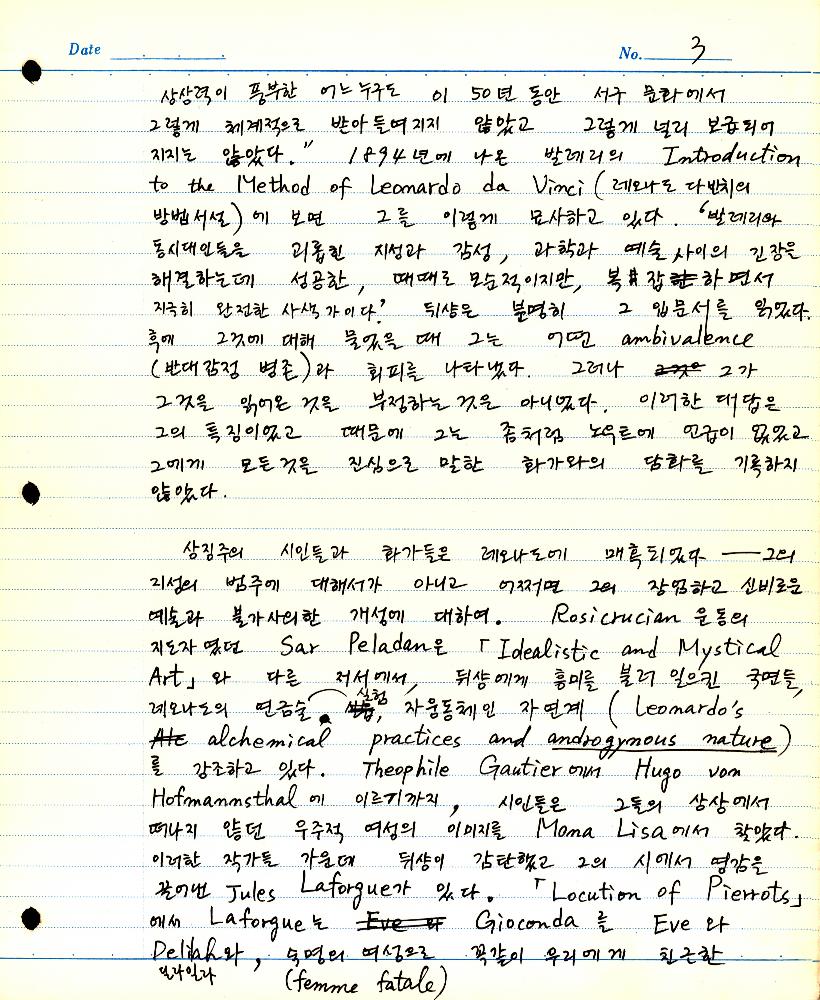 Date
No. 3
상상력이 풍부한 어느누구도 이 50년 동안 서구 문화에서
그렇게 체계적으로 받아들여지지 않았고 그렇게 널리 보급되어
지지는 않았다." 1894년에 나온 발레리의 Introduction
to the Method of Leonardo da Vinci (레오나르도 다빈치의
방법서설)에 보면 그를 이렇게 묘사하고 있다. '발레리와
동시대인들을 괴롭힌 지성과 감성, 과학과 예술 사이의 긴장을
해결하는데 성공한, 때때로 모순적이지만, 복잡하면서
지극히 완전한 사색가이다.' 뒤샹은 분명히 그 입문서를 읽었다.
후에 그것에 대해 물었을 때 그는 어떤 ambivalence
(반대감정 병존)과 회피를 나타냈다. 그러나 그가
그것을 읽어온 것을 부정하는 것은 아니었다. 이러한 대답은
그의 특징이었고 때문에 그는 좀처럼 노우트에 언급이 없었고
그에게 모든것을 진심으로 말한 화가와의 담화를 기록하지
않았다.
상징주의 시인들과 화가들은 레오나르도에 매혹되었다 — 그의
지성의 범주에 대해서가 아니고 어쩌면 그의 장엄하고 신비로운
예술과 불가사의한 개성에 대하여. Rosicrucian 운동의
지도자였던 Sar Peladan은 「Idealistic and Mystical
Art」와 다른 저서에서, 뒤샹에게 흥미를 불러 일으킨 국면들,
레오나르도의 연금술 실험, 자웅동체인 자연계 (Leonardo's
alchemical practices and androgymous nature)
를 강조하고 있다. Theophile Gautier에서 Hugo von
Hofmannsthal에 이르기까지, 시인들은 그들의 상상에서
떠나지 않던 우주적 여성의 이미지를 Mona Lisa에서 찾았다.
이러한 작가들 가운데 뒤샹이 감탄했고 그의 시에서 영감을
끌어낸 Jules Laforgue가 있다. 「Locution of Pierrots」
에서 Laforgue는 Gioconda를 Eve와
Delilah와, 숙명의 여성으로 꼭같이 우리에게 친근한
(femme fatale)